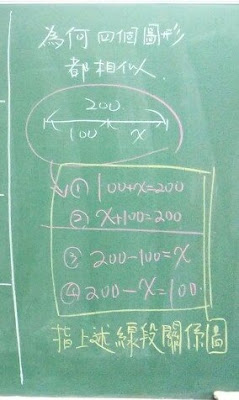 為何四個圖形
都相似
200
100 x
① 100+x=200
② x+100=200
③ 200-100=x
④ 200-x=100.
指上述線段關係圖